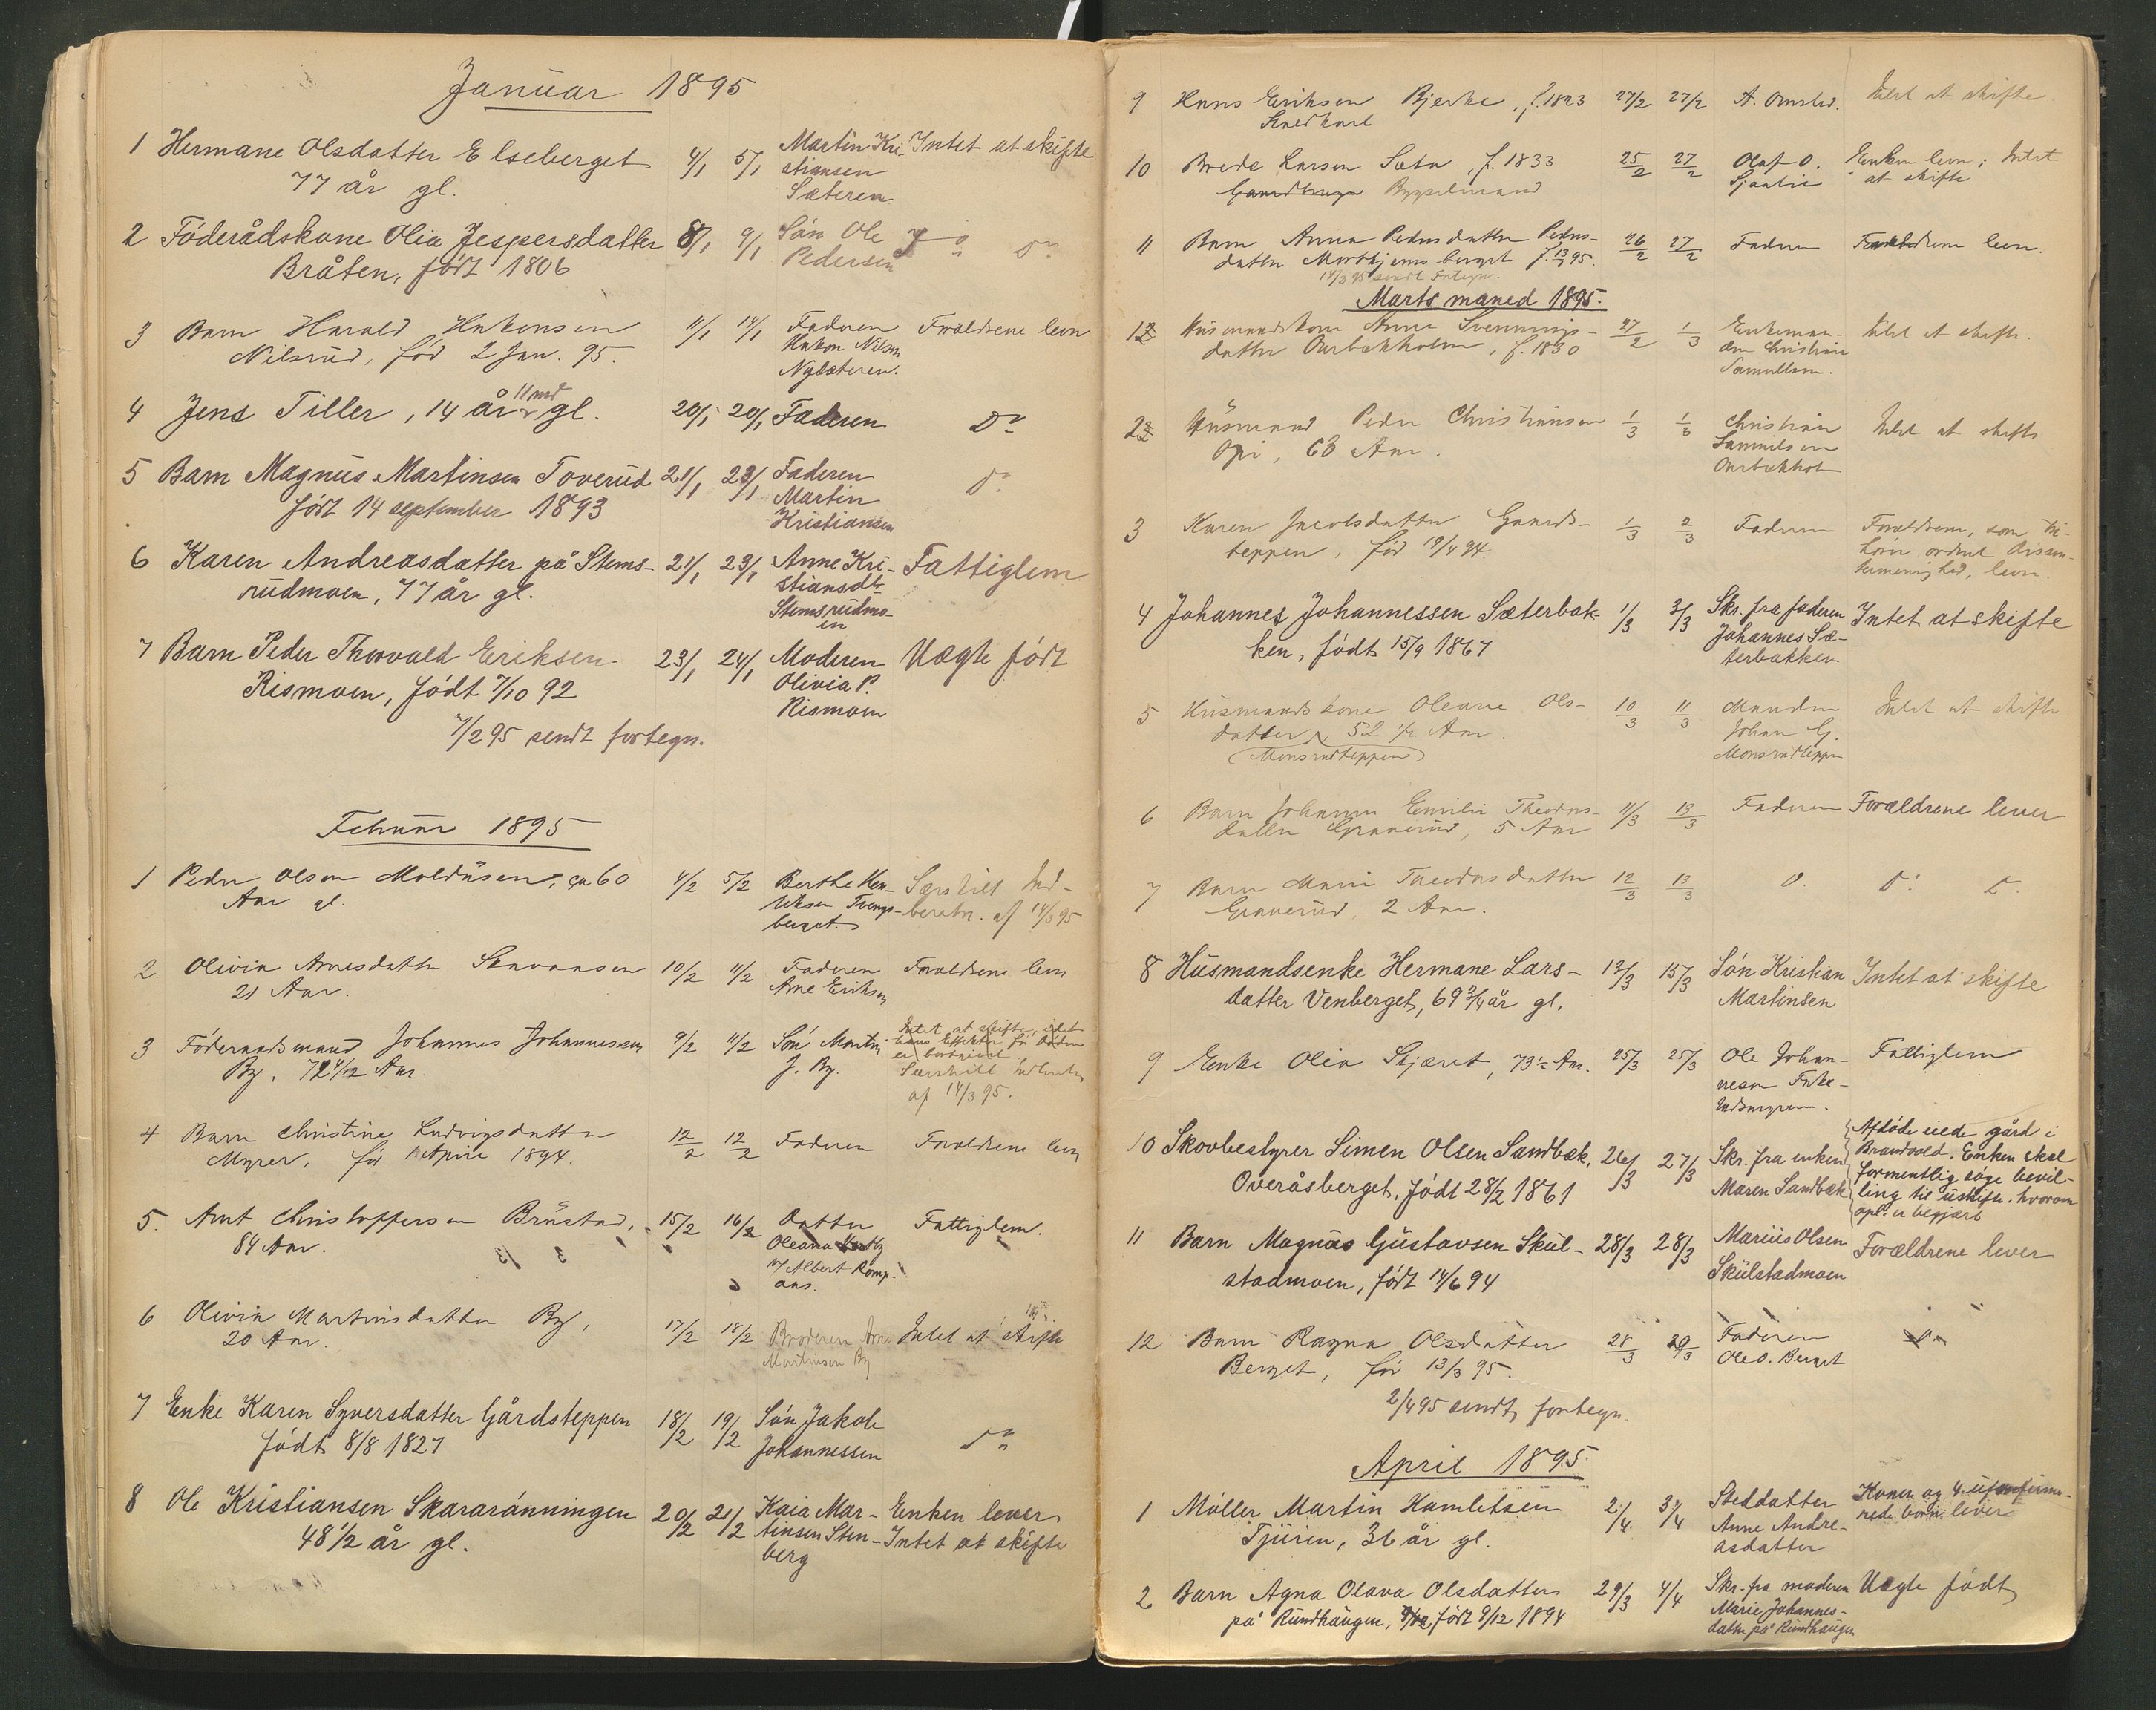 Januar 1895
1 Hermane Olsdatter Elseberget 4/1 5/1 Martin Kri Intet at skifte
77 år gl. stiansen
Sæteren
2 Föderådskone Olia Jespersdatter 8/1 9/1 Sön Ole Do
Bråten, født 1806 Pedersen
3 Barn Harald Hakonsen 11/1 14/1 Faderen Forældrene lever
Nilsrud, fød 2 Jan. 95. Hakon Nilsen
Nysæteren.
4 Jens Tiller, 14 år 11 md gl. 20/1 20/1 Faderen Do
5 Barn Magnus Martinsen Toverud 21/1 23/1 Faderen Do
født 14 september 1893 Martin
Kristiansen
6 Karen Andreasdatter på Stems- 21/1 23/1 Anne Kri- Fattiglem
rudmoen, 77 år gl. stiansdtr
Stemsrudmo-
en
7 Barn Peder Thorvald Eriksen 23/1 24/1 Moderen Uægte født
Rismoen, født 7/10 92 Olivia P.
Rismoen
7/2 95 sendt fortegn.
Februar 1895
1 Peder Olsen Moldusen, ca 60 4/2 5/2 Berthe Særskilt Ind-
Aar gl. beretn. af 14/3 95
berget.
2. Olivia Arnesdatter 10/2 11/2 Faderen Forældrene lever
21 Aar. Arne Eriksen
3 Föderaadsmand Johannes Johannessen 9/2 11/2 Sön Martin Intet at skifte, idet
By, 72 1/2 Aar. J. By. hans Effekter
er bortgivet.
Særskilt Indberetn.
af 14/3 95.
4 Barn Christine Ludvigsdatter 12/2 12/2 Faderen Forældrene lever
Myrer, fød April 1894.
5. Arnt Christoffersen Brustad, 15/2 16/2 Datter Fattiglem.
84 Aar. Oleana
Albert Romp.
aas.
6 Olivia Martinsdatter By, 17/2 18/2 Broderen Arne Intet at skifte
20 Aar. Martinsen By
7 Enke Karen Syversdatter Gårdsteppen 18/2 19/2 Sön Jakob Do
født 8/8 1827 Johannessen
8 Ole Kristiansen Skararönningen 20/2 21/2 Kaia Mar- Enken lever
48 1/2 år gl. tinsen Sten- Intet at skifte
berg
9 Hans Eriksen Bjerke, f. 1823 27/2 27/2 A. Intet at skifte
10 Brede Larsen Sæta, f. 1833 25/2 27/2 Olaf O. Enken lever; Intet
Bygselmand at skifte
11 Barn Anna Pedersdatter Peders- 26/2 27/2 Faderen Forældrene lever.
datter f. 13/2 95.
14/3 95 sendt Fortegn.
Marts maned 1895.
1 Husmandskone Anne Svennings- 27/2 1/3 Enkeman- Intet at skifte.
datter Ourbækholen, f. 1830 den Christian
Samuelsen.
2 Husmand Peder Christiansen 1/3 1/3 Christian Intet at skifte
Opi, 63 Aar. Samuelsen
Ourbækhol
3 Karen Jacobsdatter Gaards- 1/3 2/3 Faderen Forældrene, som til-
teppen, fød 19/4 94. hører ordnet Dissen-
termenighed, lever.
4 Johannes Johannessen Sæterbak- 1/3 3/3 Skr. fra faderen Intet at skifte
ken, født 15/9 1867 Johannes Sæ-
terbakken
5 Husmandskone Oleane Ols- 10/3 11/3 Manden Intet at skifte
datter 52 1/2 Aar. Johan G.
(Monsrudteppen) Monsrudteppen
6 Barn Johanne Emilie Theodors- 11/3 13/3 Faderen Forældrene lever
datter Graverud, 5 Aar
7 Barn Marie Theodorsdatter 12/3 13/3 Do Do Do
Graverud, 2 Aar.
8 Husmandsenke Hermane Lars- 13/3 15/3 Sön Kristian Intet at skifte
datter Venberget, 69 3/4 år gl. Martinsen
9 Enke Olia Skjæret, 73 1/2 Aar. 25/3 25/3 Ole Johan- Fattiglem
nesen
10 Skovbestyrer Simen Olsen Sandbæk, 26/3 27/3 Skr. fra enken Afdöde eiede gård i
Overåsberget, født 28/2 1861 Maren Sandbæk Brandvold. Enken skal
formentlig söge bevil-
ling til uskifte. hvorom
opl. er begjært
11 Barn Magnus Gustavsen Skul- 28/3 28/3 Marius Olsen Forældrene lever
stadmoen, født 14/6 94 Skulstadmoen
12 Barn Ragna Olsdatter 28/3 29/3 Faderen Do
Berget, fød 13/3 95. Ole O. Berget
2/4 95 sendt fortegn.
April 1895.
1 Möller Martin Hamletsen 2/4 3/4 Steddatter Konen og 4 ukonfirme-
Tjuren, 36 år gl. Anne Andre- rede börn lever
asdatter
2 Barn Agna Olava Olsdatter 29/3 4/4 Skr. fra moderen Uægte født
på Rundhaugen, født 9/12 1894 Marie Johannes-
datter på Rundhaugen